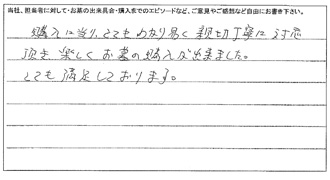 当社、担当者に対して・お墓の出来具合・購入までのエピソードなど、ご意見やご感想など自由にお書き下さい。
購入に当り、とても わかり易く 親切丁寧に 対応
頂き 楽しく お墓の購入が出来ました。
とても 満足しております。